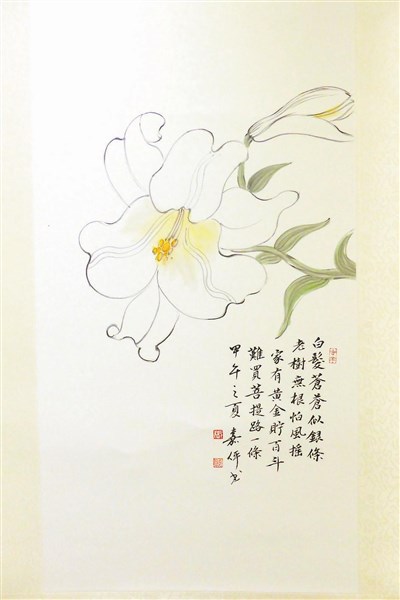 白髮蒼蒼似銀條
老樹無根怕風搖
家有黃金貯百斗
難買菩提路一條
甲午之夏 嘉伻书